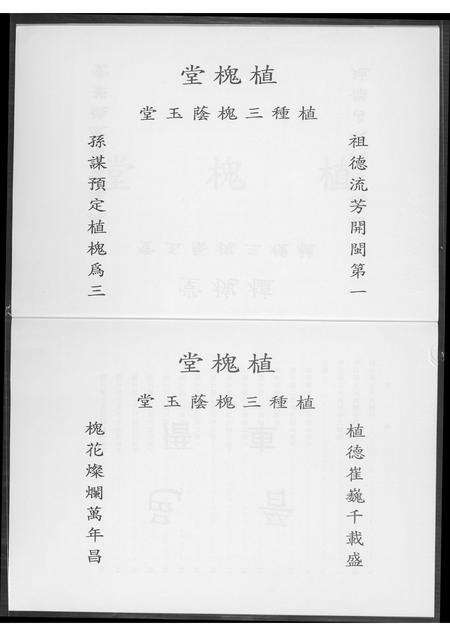 植槐堂
植種三槐蔭玉堂
祖德流芳開閩第一
孫謀預定植槐爲三
植槐堂
植種三槐蔭玉堂
植德崔巍千載盛
槐花燦爛萬年昌